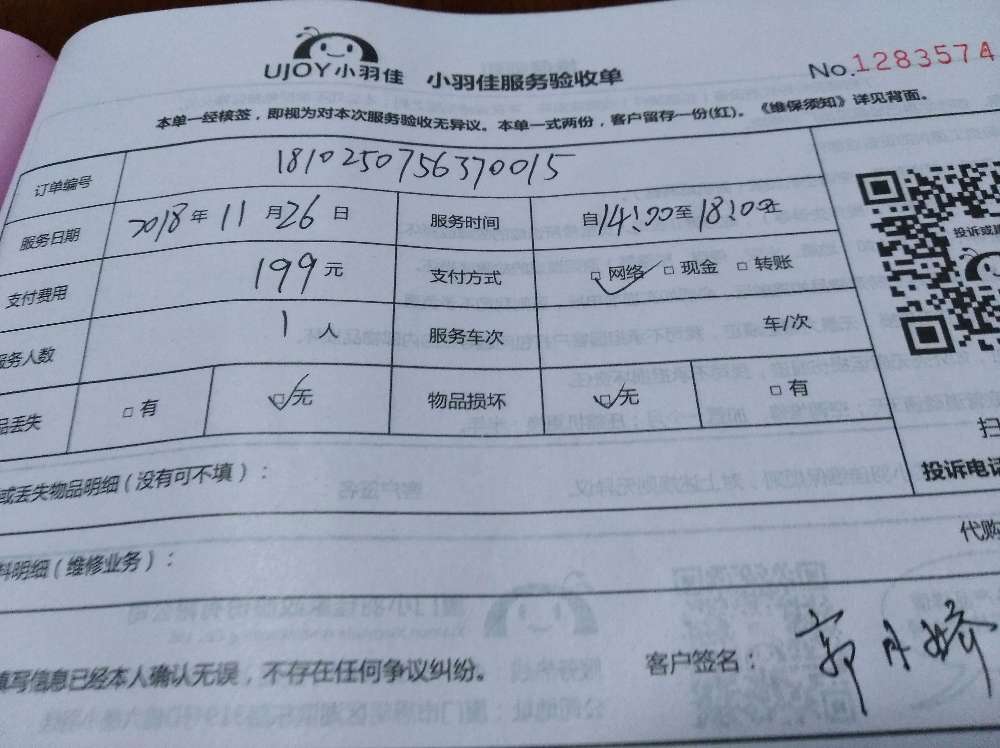 UJOY小羽佳 小羽佳服务验收单 No.1283574
本单一经核签，即视为对本次服务验收无异议。本单一式两份，客户留存一份(红)。《维保须知》详见背面。
订单编号 181025075637​0015
服务日期 2018年11月26日 服务时间 自14:00至18:00止
支付费用 199元 支付方式 □网络✓ □现金 □转账
服务人数 1人 服务车次 车/次
品丢失 □有 ☑无 物品损坏 ☑无 □有
投诉或
扫
投诉电话
或丢失物品明细（没有可不填）：
代购
料明细（维修业务）：
填写信息已经本人确认无误，不存在任何争议纠纷。 客户签名：